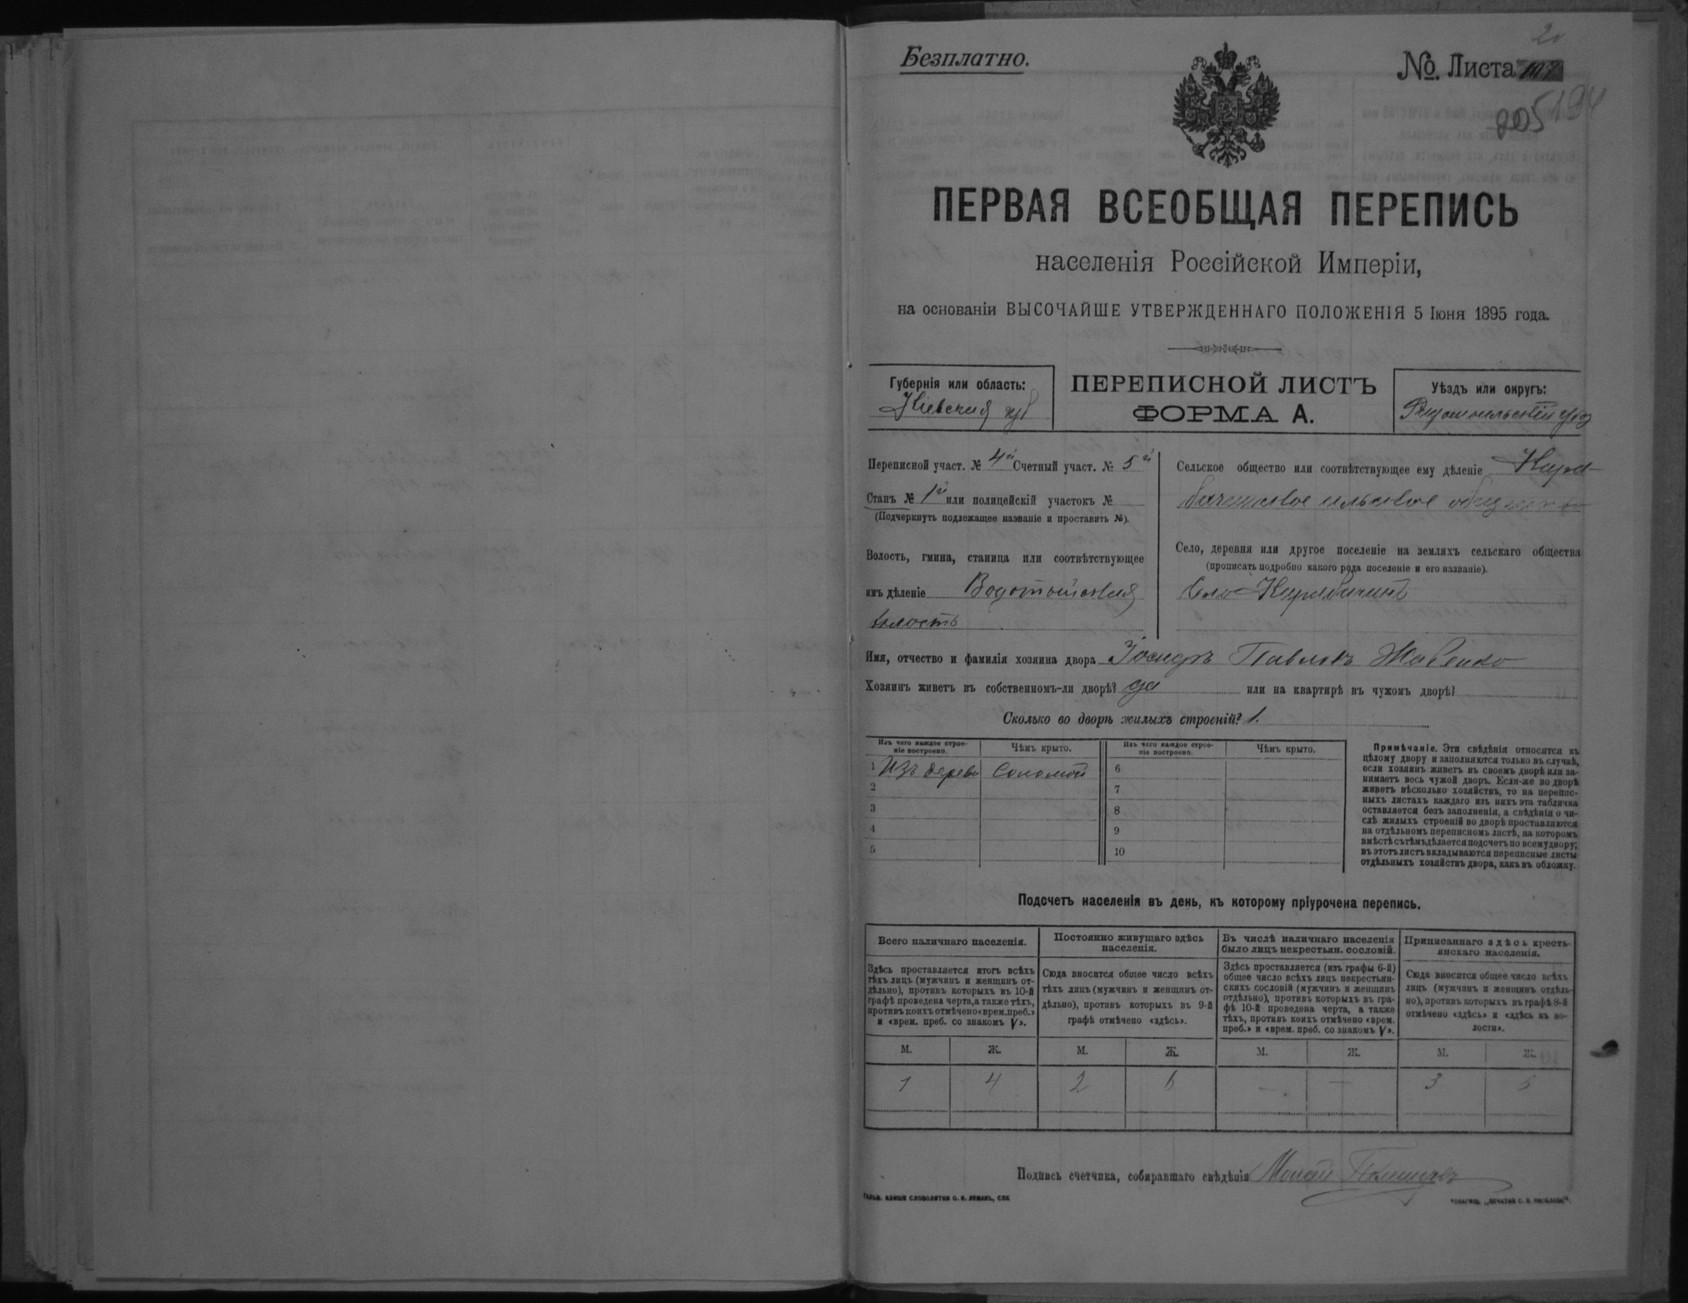 Безплатно.
№. Листа
20
205 194
ПЕРВАЯ ВСЕОБЩАЯ ПЕРЕПИСЬ
населенія Россійской Имперіи,
на основаніи ВЫСОЧАЙШЕ УТВЕРЖДЕННАГО ПОЛОЖЕНІЯ 5 Іюня 1895 года.
Губернія или область:
Кіевская губ
ПЕРЕПИСНОЙ ЛИСТЪ
ФОРМА А.
Уѣздъ или округъ:
Радомысльскій уѣз
Переписной участ. № 4й Счетный участ. № 5й
Станъ № 1й или полицейскій участокъ №
(Подчеркнуть подлежащее названіе и проставить №).
Волость, гмина, станица или соотвѣтствующее
имъ дѣленіе Водотыйская
волость
Сельское общество или соотвѣтствующее ему дѣленіе
сельское общество
Село, деревня или другое поселеніе на земляхъ сельскаго общества
(прописать подробно какого рода поселеніе и его названіе).
Село
Имя, отчество и фамилія хозяина двора Павловъ
Хозяинъ живетъ въ собственномъ-ли дворѣ? да или на квартирѣ въ чужомъ дворѣ?
Сколько во дворѣ жилыхъ строеній? 1.
Изъ чего каждое строе-
ніе построено.
Чѣмъ крыто.
Изъ чего каждое строе-
ніе построено.
Чѣмъ крыто.
1 Изъ дерева Соломой 6
2 7
3 8
4 9
5 10
Примѣчаніе. Эти свѣдѣнія относятся къ
цѣлому двору и заполняются только въ случаѣ,
если хозяинъ живетъ въ своемъ дворѣ или за-
нимаетъ весь чужой дворъ. Если-же во дворѣ
живетъ нѣсколько хозяйствъ, то на перепис-
ныхъ листахъ каждаго изъ нихъ эта табличка
оставляется безъ заполненія, а свѣдѣнія о чи-
слѣ жилыхъ строеній во дворѣ проставляются
на отдѣльномъ переписномъ листѣ, на которомъ
вмѣстѣ съ тѣмъ дѣлается подсчетъ по всему двору;
въ этотъ листъ вкладываются переписные листы
отдѣльныхъ хозяйствъ двора, какъ въ обложку.
Подсчетъ населенія въ день, къ которому пріурочена перепись.
Всего наличнаго населенія.
Постоянно живущаго здѣсь
населенія.
Въ числѣ наличнаго населенія
было лицъ некрестьян. сословій.
Приписаннаго здѣсь кресть-
янскаго населенія.
Здѣсь проставляется итогъ всѣхъ
тѣхъ лицъ (мужчинъ и женщинъ от-
дѣльно), противъ которыхъ въ 10-й
графѣ проведена черта, а также тѣхъ,
противъ коихъ отмѣчено «врем. преб.»
и «врем. преб. со знакомъ V».
Сюда вносится общее число всѣхъ
тѣхъ лицъ (мужчинъ и женщинъ от-
дѣльно), противъ которыхъ въ 9-й
графѣ отмѣчено «здѣсь».
Здѣсь проставляется (изъ графы 6-й)
общее число всѣхъ лицъ некрестьян-
скихъ сословій (мужчинъ и женщинъ
отдѣльно), противъ которыхъ въ гра-
фѣ 10-й проведена черта, а также
тѣхъ, противъ коихъ отмѣчено «врем.
преб.» и «врем. преб. со знакомъ V».
Сюда вносится общее число всѣхъ
лицъ (мужчинъ и женщинъ отдѣль-
но), противъ которыхъ въ графѣ 8-й
отмѣчено «здѣсь» и «здѣсь въ во-
лости».
М. Ж. М. Ж. М. Ж. М. Ж.
1 4 2 6 — — 3 6
Подпись счетчика, собиравшаго свѣдѣнія